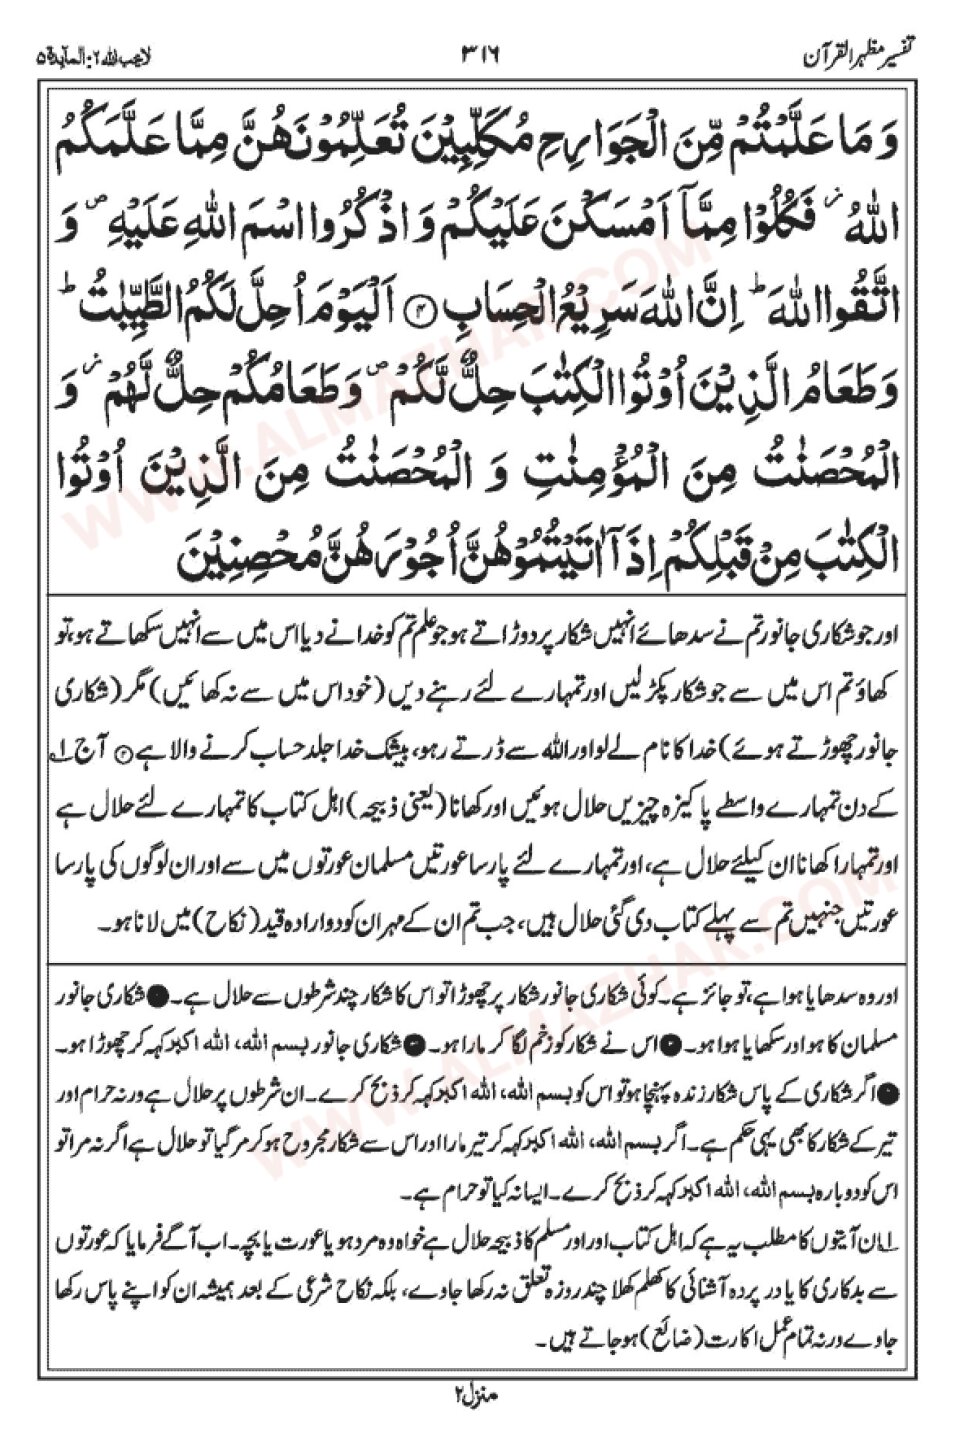 تفسیر مظہر القرآن
۳۱۶
لا یحب اللہ ۶: المآیدۃ ۵
وَمَا عَلَّمْتُمْ مِّنَ الْجَوَارِحِ مُكَلِّبِيْنَ تُعَلِّمُوْنَهُنَّ مِمَّا عَلَّمَكُمُ
اللّٰهُ ز فَكُلُوْا مِمَّآ اَمْسَكْنَ عَلَيْكُمْ وَاذْكُرُوا اسْمَ اللّٰهِ عَلَيْهِ ص وَ
اتَّقُوا اللّٰهَ ط اِنَّ اللّٰهَ سَرِيْعُ الْحِسَابِ ۴ اَلْيَوْمَ اُحِلَّ لَكُمُ الطَّيِّبٰتُ ط
وَطَعَامُ الَّذِيْنَ اُوْتُوا الْكِتٰبَ حِلٌّ لَّكُمْ ص وَطَعَامُكُمْ حِلٌّ لَّهُمْ ز وَ
الْمُحْصَنٰتُ مِنَ الْمُؤْمِنٰتِ وَ الْمُحْصَنٰتُ مِنَ الَّذِيْنَ اُوْتُوا
الْكِتٰبَ مِنْ قَبْلِكُمْ اِذَآ اٰتَيْتُمُوْهُنَّ اُجُوْرَهُنَّ مُحْصِنِيْنَ
اور جو شکاری جانور تم نے سدھائے انہیں شکار پر دوڑاتے ہو جو علم تم کو خدا نے دیا اس میں سے انہیں سکھاتے ہو، تو
کھاؤ تم اس میں سے جو شکار پکڑ لیں اور تمہارے لئے رہنے دیں (خود اس میں سے نہ کھائیں) مگر (شکاری
جانور چھوڑتے ہوئے) خدا کا نام لے لو اور اللہ سے ڈرتے رہو، بیشک خدا جلد حساب کرنے والا ہے ۴ آج ۱
کے دن تمہارے واسطے پاکیزہ چیزیں حلال ہوئیں اور کھانا (یعنی ذبیحہ) اہل کتاب کا تمہارے لئے حلال ہے
اور تمہارا کھانا ان کیلئے حلال ہے، اور تمہارے لئے پارسا عورتیں مسلمان عورتوں میں سے اور ان لوگوں کی پارسا
عورتیں جنہیں تم سے پہلے کتاب دی گئی حلال ہیں، جب تم ان کے مہر ان کو دو ارادہ قید (نکاح) میں لانا ہو۔
اور وہ سدھایا ہوا ہے، تو جائز ہے۔ کوئی شکاری جانور شکار پر چھوڑا تو اس کا شکار چند شرطوں سے حلال ہے۔ شکاری جانور
مسلمان کا ہو اور سکھایا ہوا ہو۔ اس نے شکار کو زخم لگا کر مارا ہو۔ شکاری جانور بسم اللہ، اللہ اکبر کہہ کر چھوڑا ہو۔
اگر شکاری کے پاس شکار زندہ پہنچا ہو تو اس کو بسم اللہ، اللہ اکبر کہہ کر ذبح کرے۔ ان شرطوں پر حلال ہے ورنہ حرام اور
تیر کے شکار کا بھی یہی حکم ہے۔ اگر بسم اللہ، اللہ اکبر کہہ کر تیر مارا اور اس سے شکار مجروح ہو کر مر گیا تو حلال ہے اگر نہ مرا تو
اس کو دوبارہ بسم اللہ، اللہ اکبر کہہ کر ذبح کرے۔ ایسا نہ کیا تو حرام ہے۔
۱ ان آیتوں کا مطلب یہ ہے کہ اہل کتاب اور اور مسلم کا ذبیحہ حلال ہے خواہ وہ مرد ہو یا عورت یا بچہ۔ اب آگے فرمایا کہ عورتوں
سے بدکاری کا یا در پردہ آشنائی کا کھلم کھلا چند روزہ تعلق نہ رکھا جاوے، بلکہ نکاح شرعی کے بعد ہمیشہ ان کو اپنے پاس رکھا
جاوے ورنہ تمام عمل اکارت (ضائع) ہو جاتے ہیں۔
منزل ۲
WWW.ALMAZHAR.COM
WWW.ALMAZHAR.COM